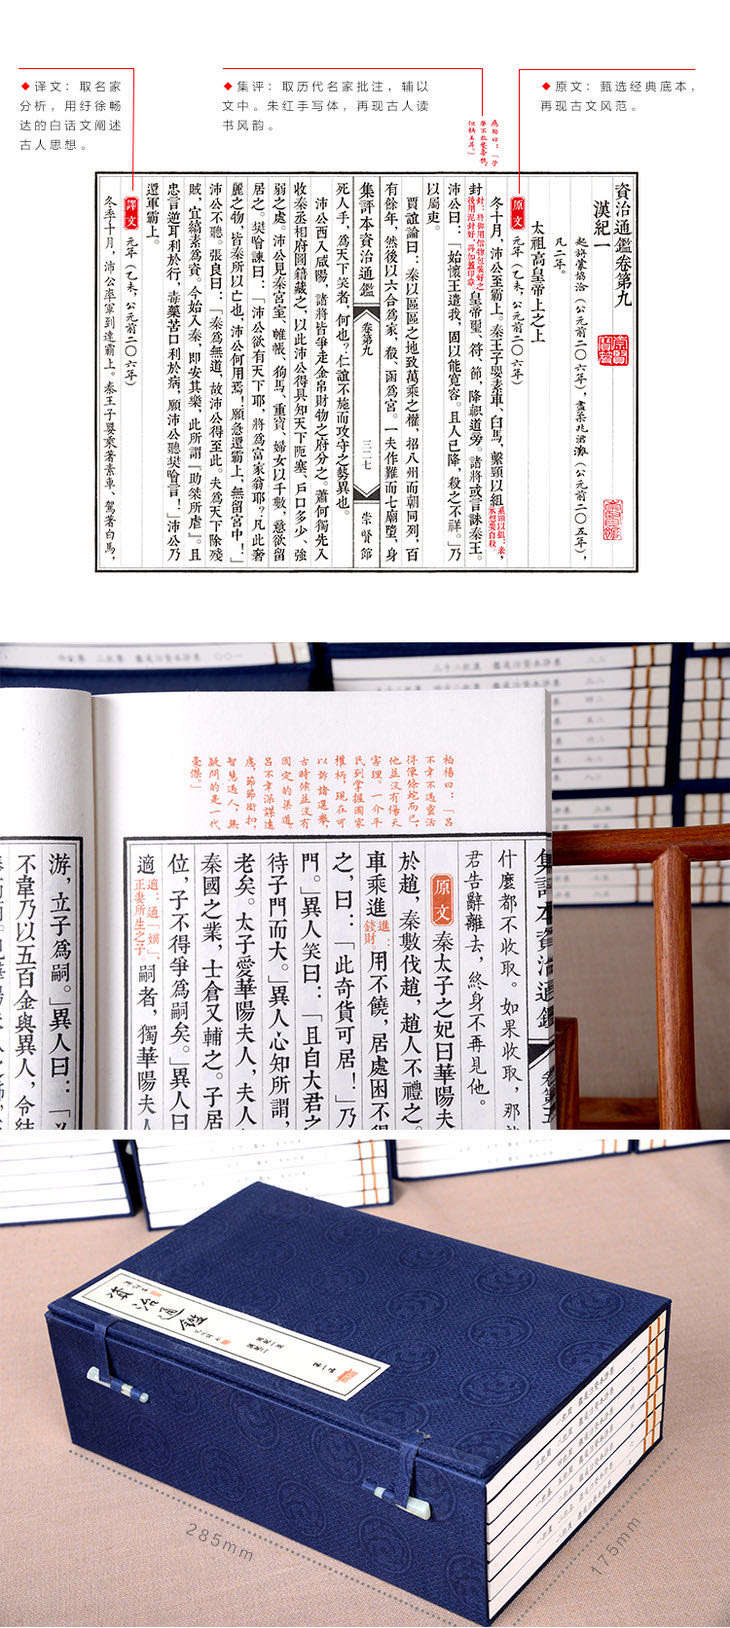 ◆译文：取名家
分析，用纡徐畅
达的白话文阐述
古人思想。
◆集评：取历代名家批注，辅以
文中。朱红手写体，再现古人读
书风韵。
◆原文：甄选经典底本，
再现古文风范。
資治通鑑卷第九
漢紀一
起旃蒙協洽（公元前二〇六年），盡柔兆涒灘（公元前二〇五年），
凡二年。
太祖高皇帝上之上
原文
元年（乙未，公元前二〇六年）
冬十月，沛公至霸上。秦王子嬰素車、白馬，繫頸以組，
封皇帝璽、符、節，降軹道旁。諸將或言誅秦王。
沛公曰：「始懷王遣我，固以能寬容。且人已降，殺之不祥。」乃
以屬吏。
賈誼論曰：秦以區區之地致萬乘之權，招八州而朝同列，百
有餘年，然後以六合為家，殽、函為宮。一夫作難而七廟墮，身
集評本資治通鑑
卷第九
三二七
崇賢館
死人手，為天下笑者，何也？仁誼不施而攻守之勢異也。
沛公西入咸陽，諸將皆爭走金帛財物之府分之。蕭何獨先入
收秦丞相府圖籍藏之，以此沛公得具知天下阨塞、戶口多少、強
弱之處。沛公見秦宮室、帷帳、狗馬、重寶、婦女以千數，意欲留
居之。樊噲諫曰：「沛公欲有天下耶，將為富家翁耶？凡此奢
麗之物，皆秦所以亡也，沛公何用焉！願急還霸上，無留宮中！」
沛公不聽。張良曰：「秦為無道，故沛公得至此。夫為天下除殘
賊，宜縞素為資。今始入秦，即安其樂，此所謂『助桀所虐』。且
忠言逆耳利於行，毒藥苦口利於病，願沛公聽樊噲言！」沛公乃
還軍霸上。
譯文
元年（乙未，公元前二〇六年）
冬季十月，沛公率軍到達霸上。秦王子嬰乘著素車、駕著白馬，
柏楊曰：「呂
不韋不過靈活
得像條蛇而已，
他並沒有傷天
害理。一介平
民到掌握國家
權柄，現在可
以訴諸選舉，
古時候並沒有
固定的渠道，
呂不韋深謀遠
慮，節節銜扣，
智慧過人，無
疑問的是一代
豪傑。」
集評本資治通鑑
卷第五
什麼都不收取。如果收取，那
君告辭離去，終身不再見他。
原文
秦太子之妃曰華陽夫
於趙，秦數伐趙，趙人不禮之。
車乘進
進：
錢財。
用不饒，居處困不得
之，曰：「此奇貨可居！」乃
門。」異人笑曰：「且自大君之
待子門而大。」異人心知所謂，
老矣。太子愛華陽夫人，夫人
秦國之業，士倉又輔之。子居
位，子不得爭為嗣矣。」異人曰
適
適：通「嫡」，
正妻所生之子。
嗣者，獨華陽夫人
游，立子為嗣。」異人曰：「
不韋乃以五百金與異人，令結
資治通鑑
285mm
175mm